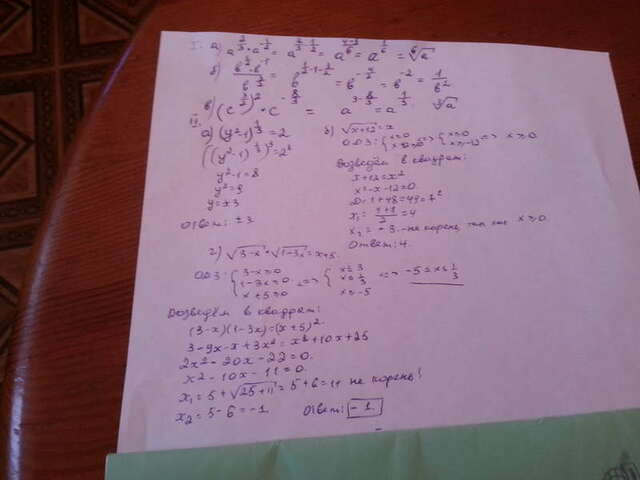 I. а) a^{2/3} · a^{-1/2} = a^{2/3 - 1/2} = a^{(4-3)/6} = a^{1/6} = ⁶√a
= b^{-2} = 1/b²
в)
II.
а) (y²-1)^{1/3} = 2
((y²-1)^{1/3})³ = 2³
y²-1=8
y²=9
y=±3
Ответ: ±3
б) √(x+12) = x
ОДЗ: { x≥0 => { x≥0 x≥-12 => x≥0.
Возведём в квадрат:
x+12=x²
x²-x-12=0.
D=1+48=49=7²
x₁ = (1+7)/2 = 4
x₂ = -3 - не корень, так как x≥0.
Ответ: 4.
г) √(3-x) · √(1-3x) = x+5.
ОДЗ: { 3-x≥0 1-3x≥0 x+5≥0 <=> { x≤3 x≤1/3 x≥-5 <=> -5≤x≤1/3
Возведём в квадрат:
(3-x)(1-3x)=(x+5)².
3-9x-x+3x²=x²+10x+25
2x²-20x-22=0.
x²-10x-11=0.
x₁=5+√(25+11)=5+6=11 не корень!
x₂=5-6=-1
Ответ: -1.